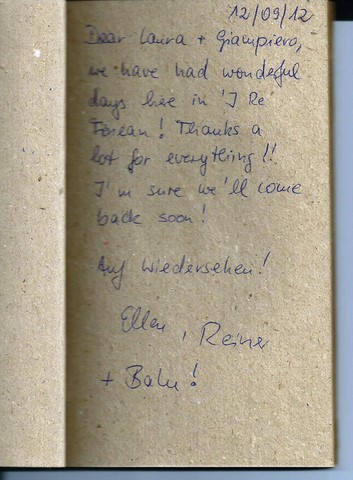 12/09/12
Dear Laura + Giampiero,
we have had wonderful
days here in 'I Re
Ferean! Thanks a
lot for everything!!
I'm sure we'll come
back soon!
Auf Wiedersehen!
Ellen, Reiner
+ Balu!